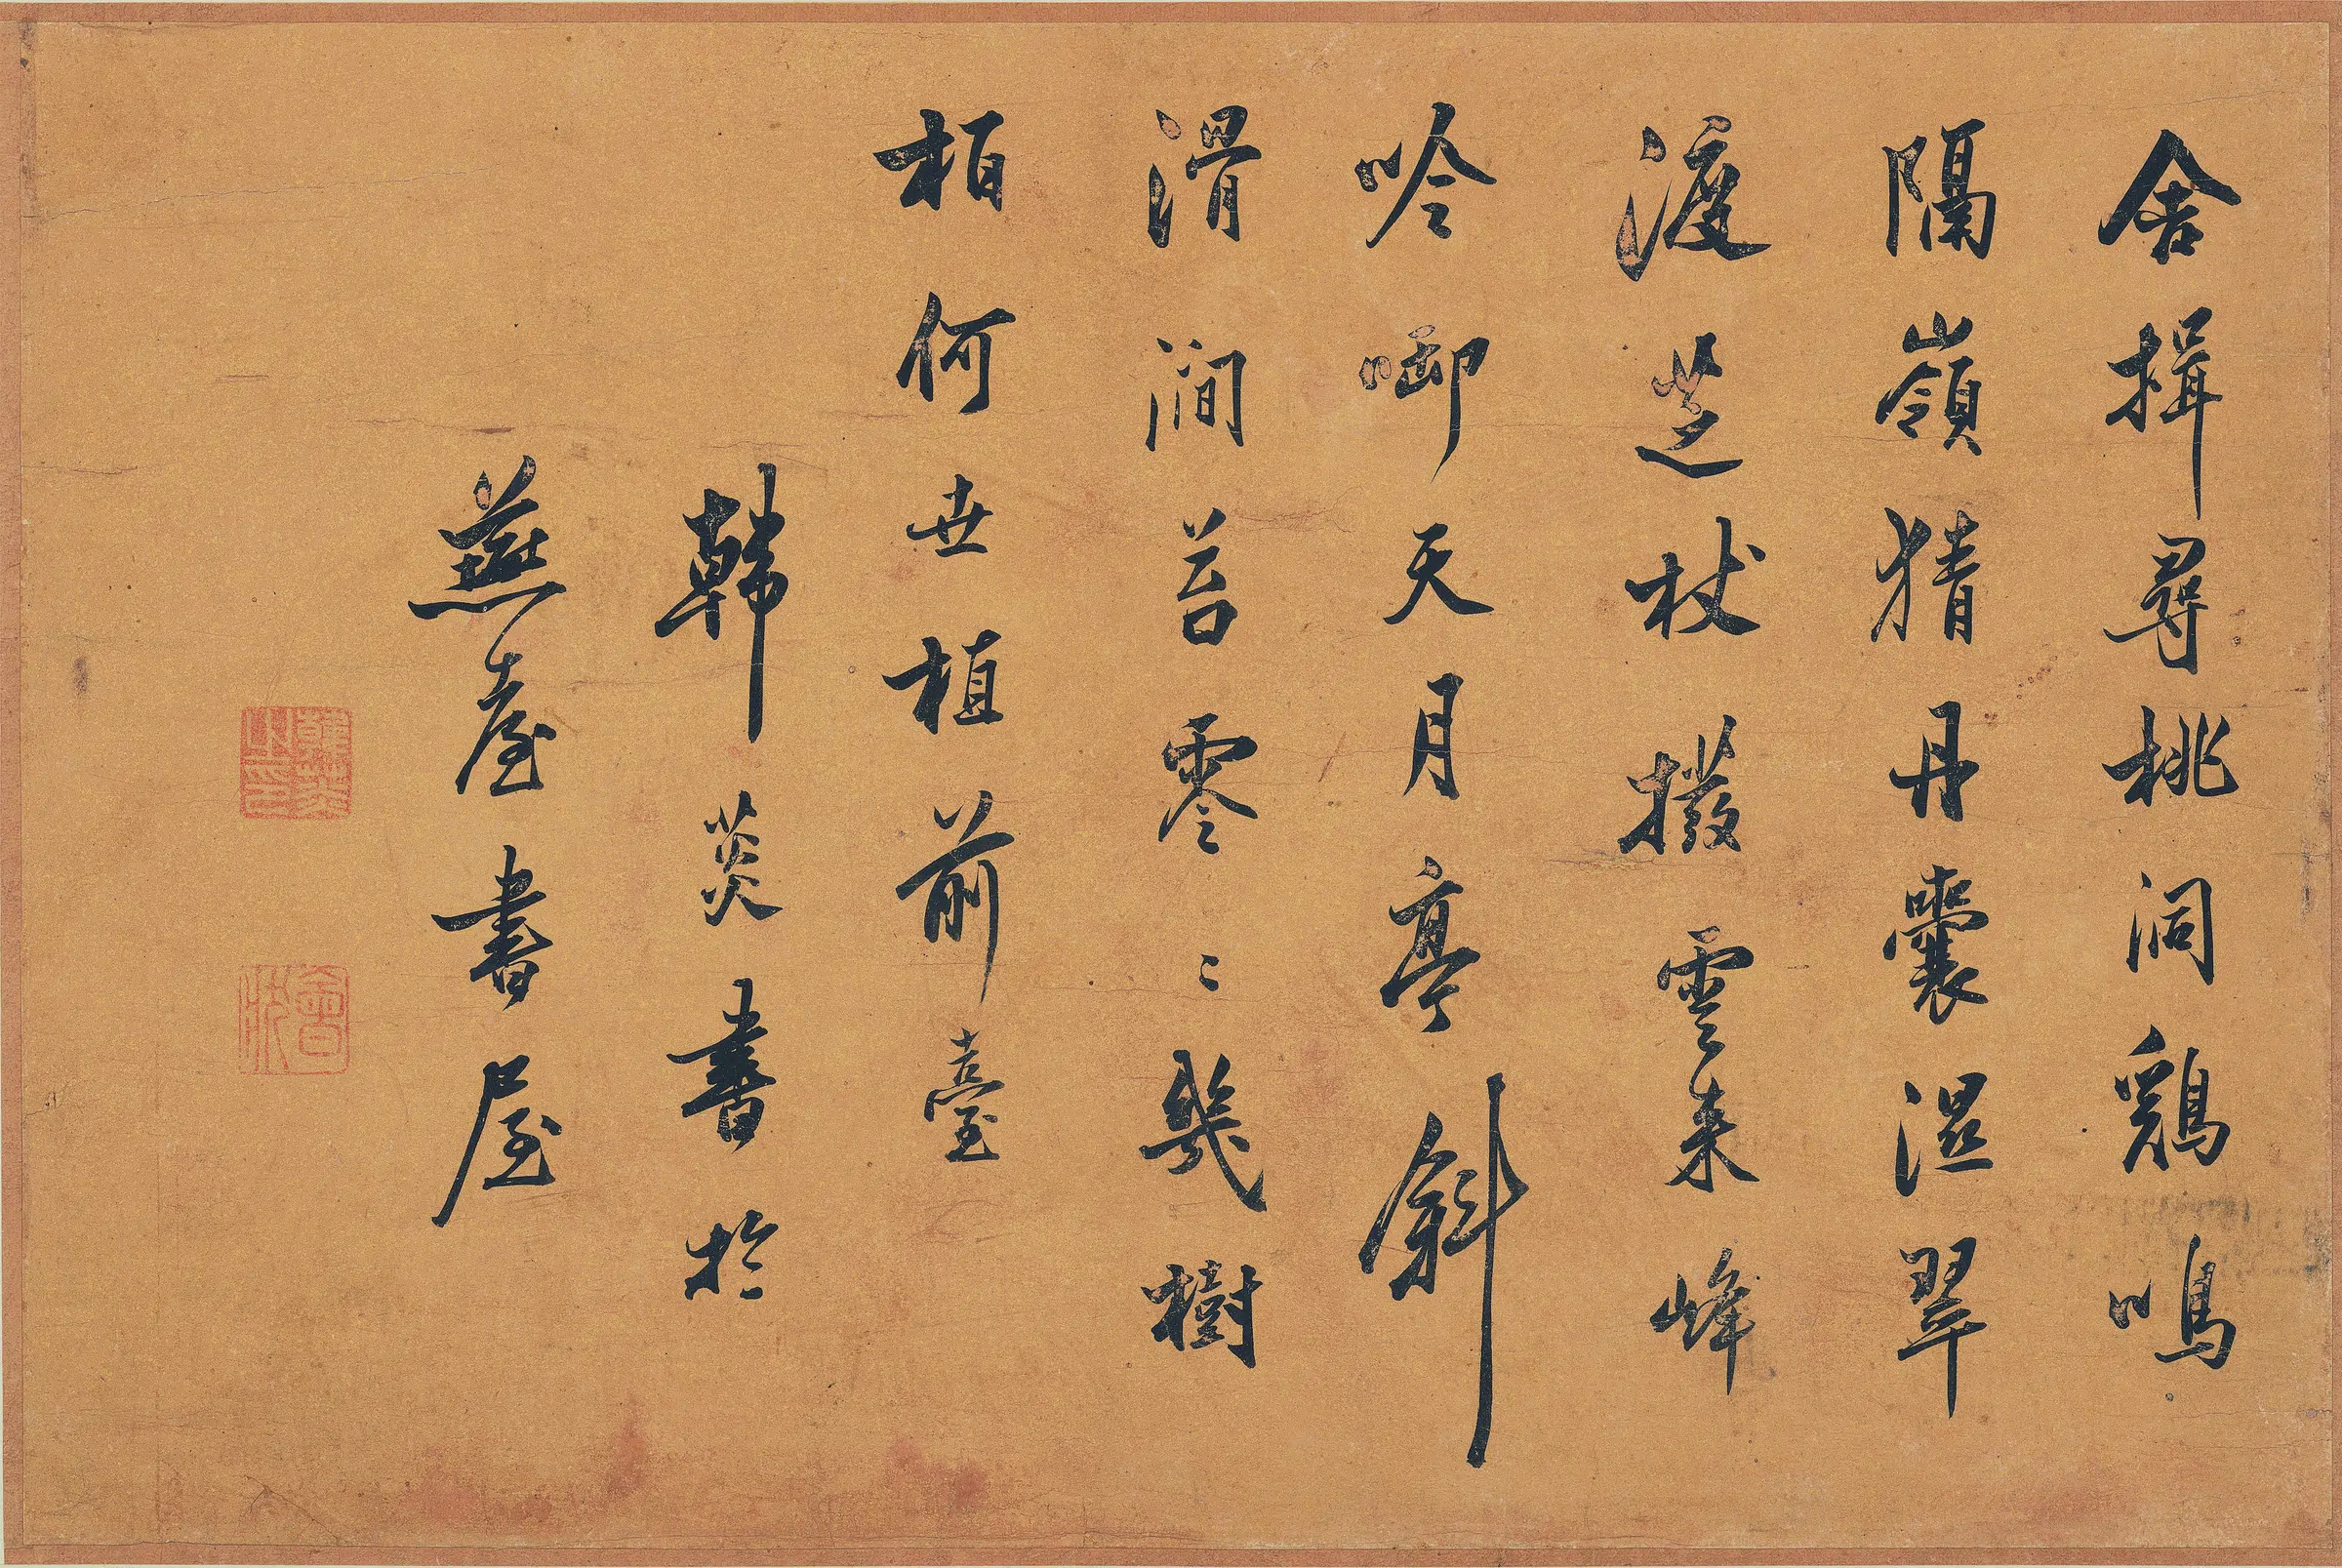 舍揖尋桃洞鷄鳴
隔嶺猜丹囊濕翠
渡芝杖撥雲来峰
吟啣天月亭斜
滑澗苔零〻幾樹
柏何世植前臺
韓菼書於
燕臺書屋
韓菼之印